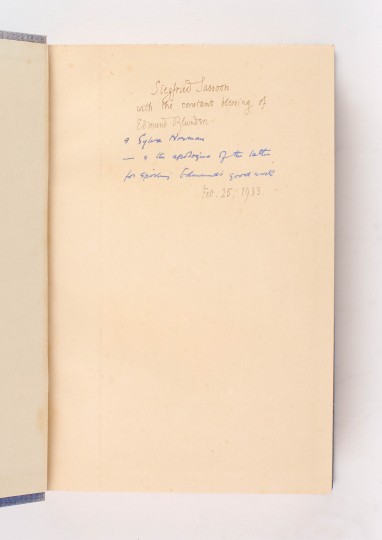 Siegfried Sassoon
with the constant blessing of
Edmund Blunden
& Sylva Norman
— & the apologies of the latter
for spoiling Edmund's good work
Feb. 25, 1933